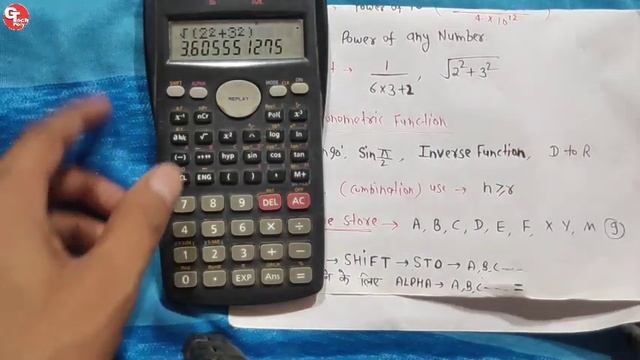 GT Tech
√(2²+3²)
3.605551275
SHIFT ALPHA MODE CLR ON
REPLAY
x⁻¹ nCr Pol( x³
√ x² ^ log ln
(−) hyp sin cos tan
ENG ( ) , M+
7 8 9 DEL AC
4 5 6 × ÷
1 2 3 + −
0 · EXP Ans =
4 × 10¹²
Power of any Number.
→ 1/(6×3+2) , √(2²+3²)
onometric Function
Sin π/2 , Inverse Function, D to R
(combination) use → n⩾r
Store → A, B, C, D, E, F, X Y, M ⑨
→ SHiFT → STO → A,B,C----
के लिए ALPHA → A,B,C---- =